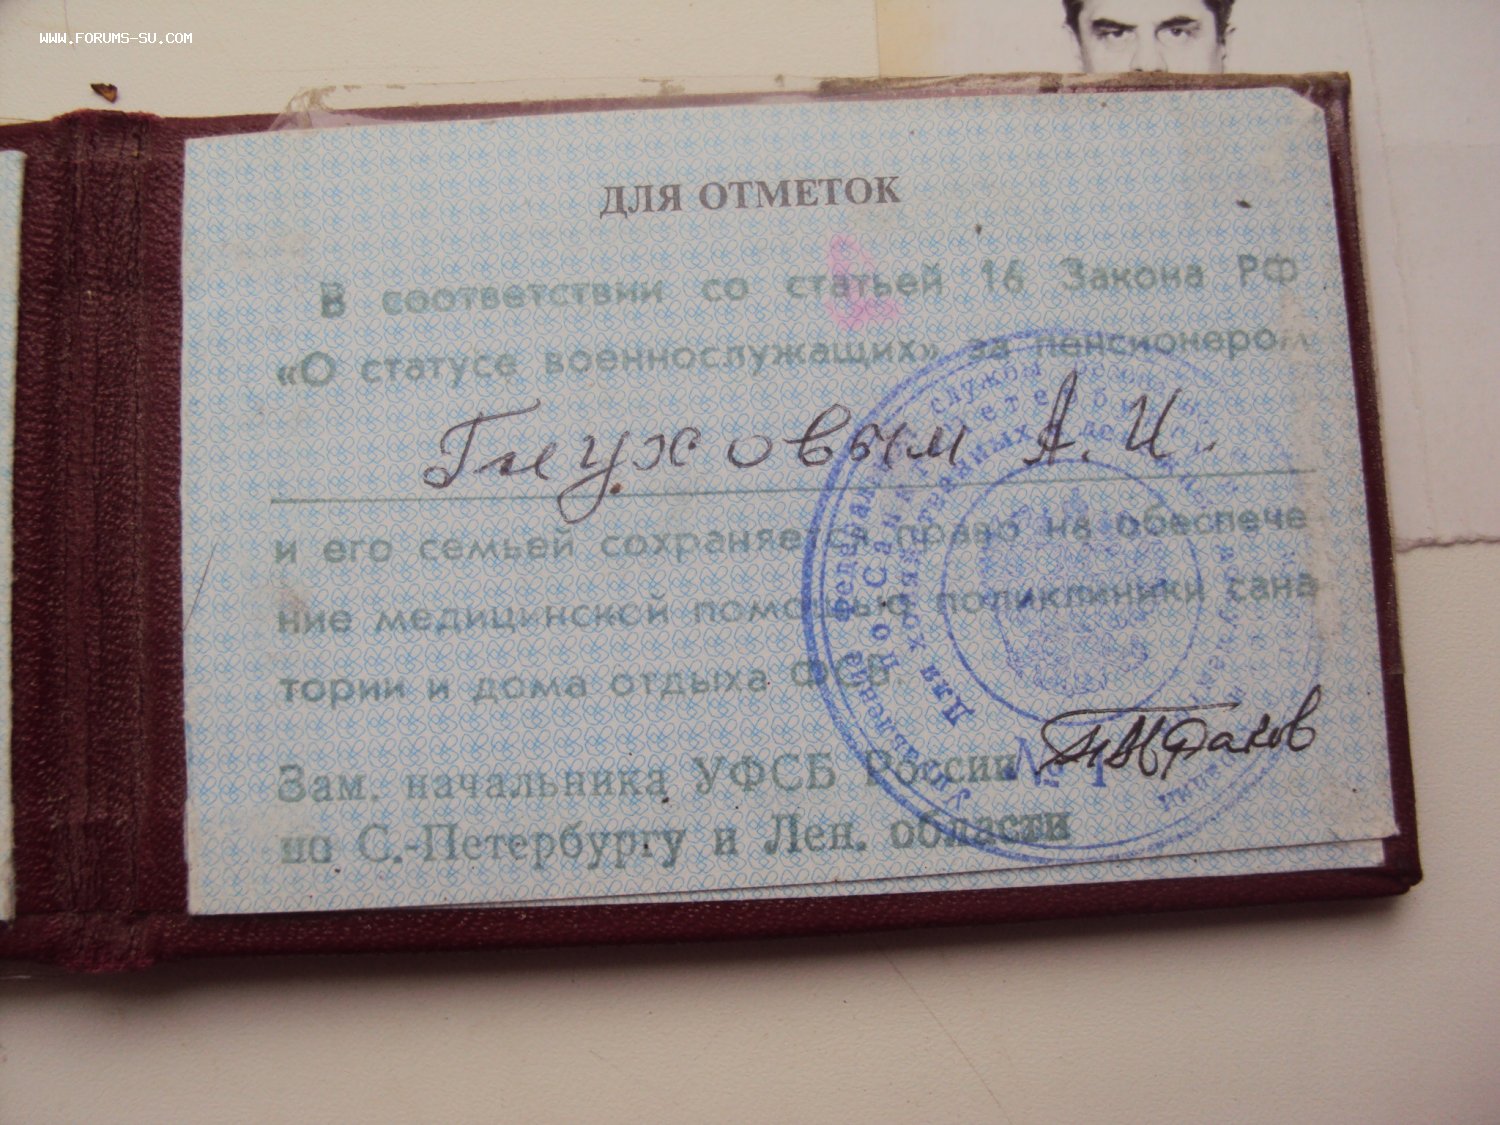 WWW.FORUMS-SU.COM
ДЛЯ ОТМЕТОК
В соответствии со статьей 16 Закона РФ
«О статусе военнослужащих» за пенсионером
Глуховым А. И.
и его семьей сохраняется право на обеспече
ние медицинской помощью поликлиники сана
тории и дома отдыха ФСБ.
Зам. начальника УФСБ России
по С.-Петербургу и Лен. области
Управление Федеральной службы
по Санкт-Петербургу
Для
№ 1